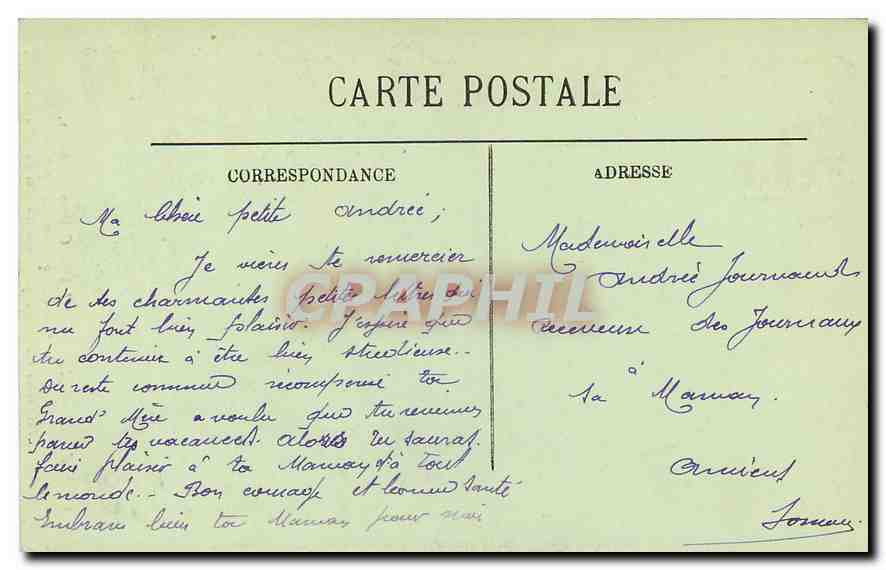 CARTE POSTALE
CORRESPONDANCE
Ma chère petite Andrée,
Je viens te remercier
de tes charmantes petites lettres qui
me font bien plaisir. J'espère que
tu continues à être bien studieuse..
Du reste comme récompense toi
Grand' Mère a voulu que tu reviennes
passer tes vacances. alors tu sauras
faire plaisir à ta Maman et à tout
le monde.. Bon courage et bonne santé
Embrasse bien ta Maman pour moi
ADRESSE
Mademoiselle
Andrée
des Journaux
à
sa Maman.
Amiens
Somme
CPAPHIL